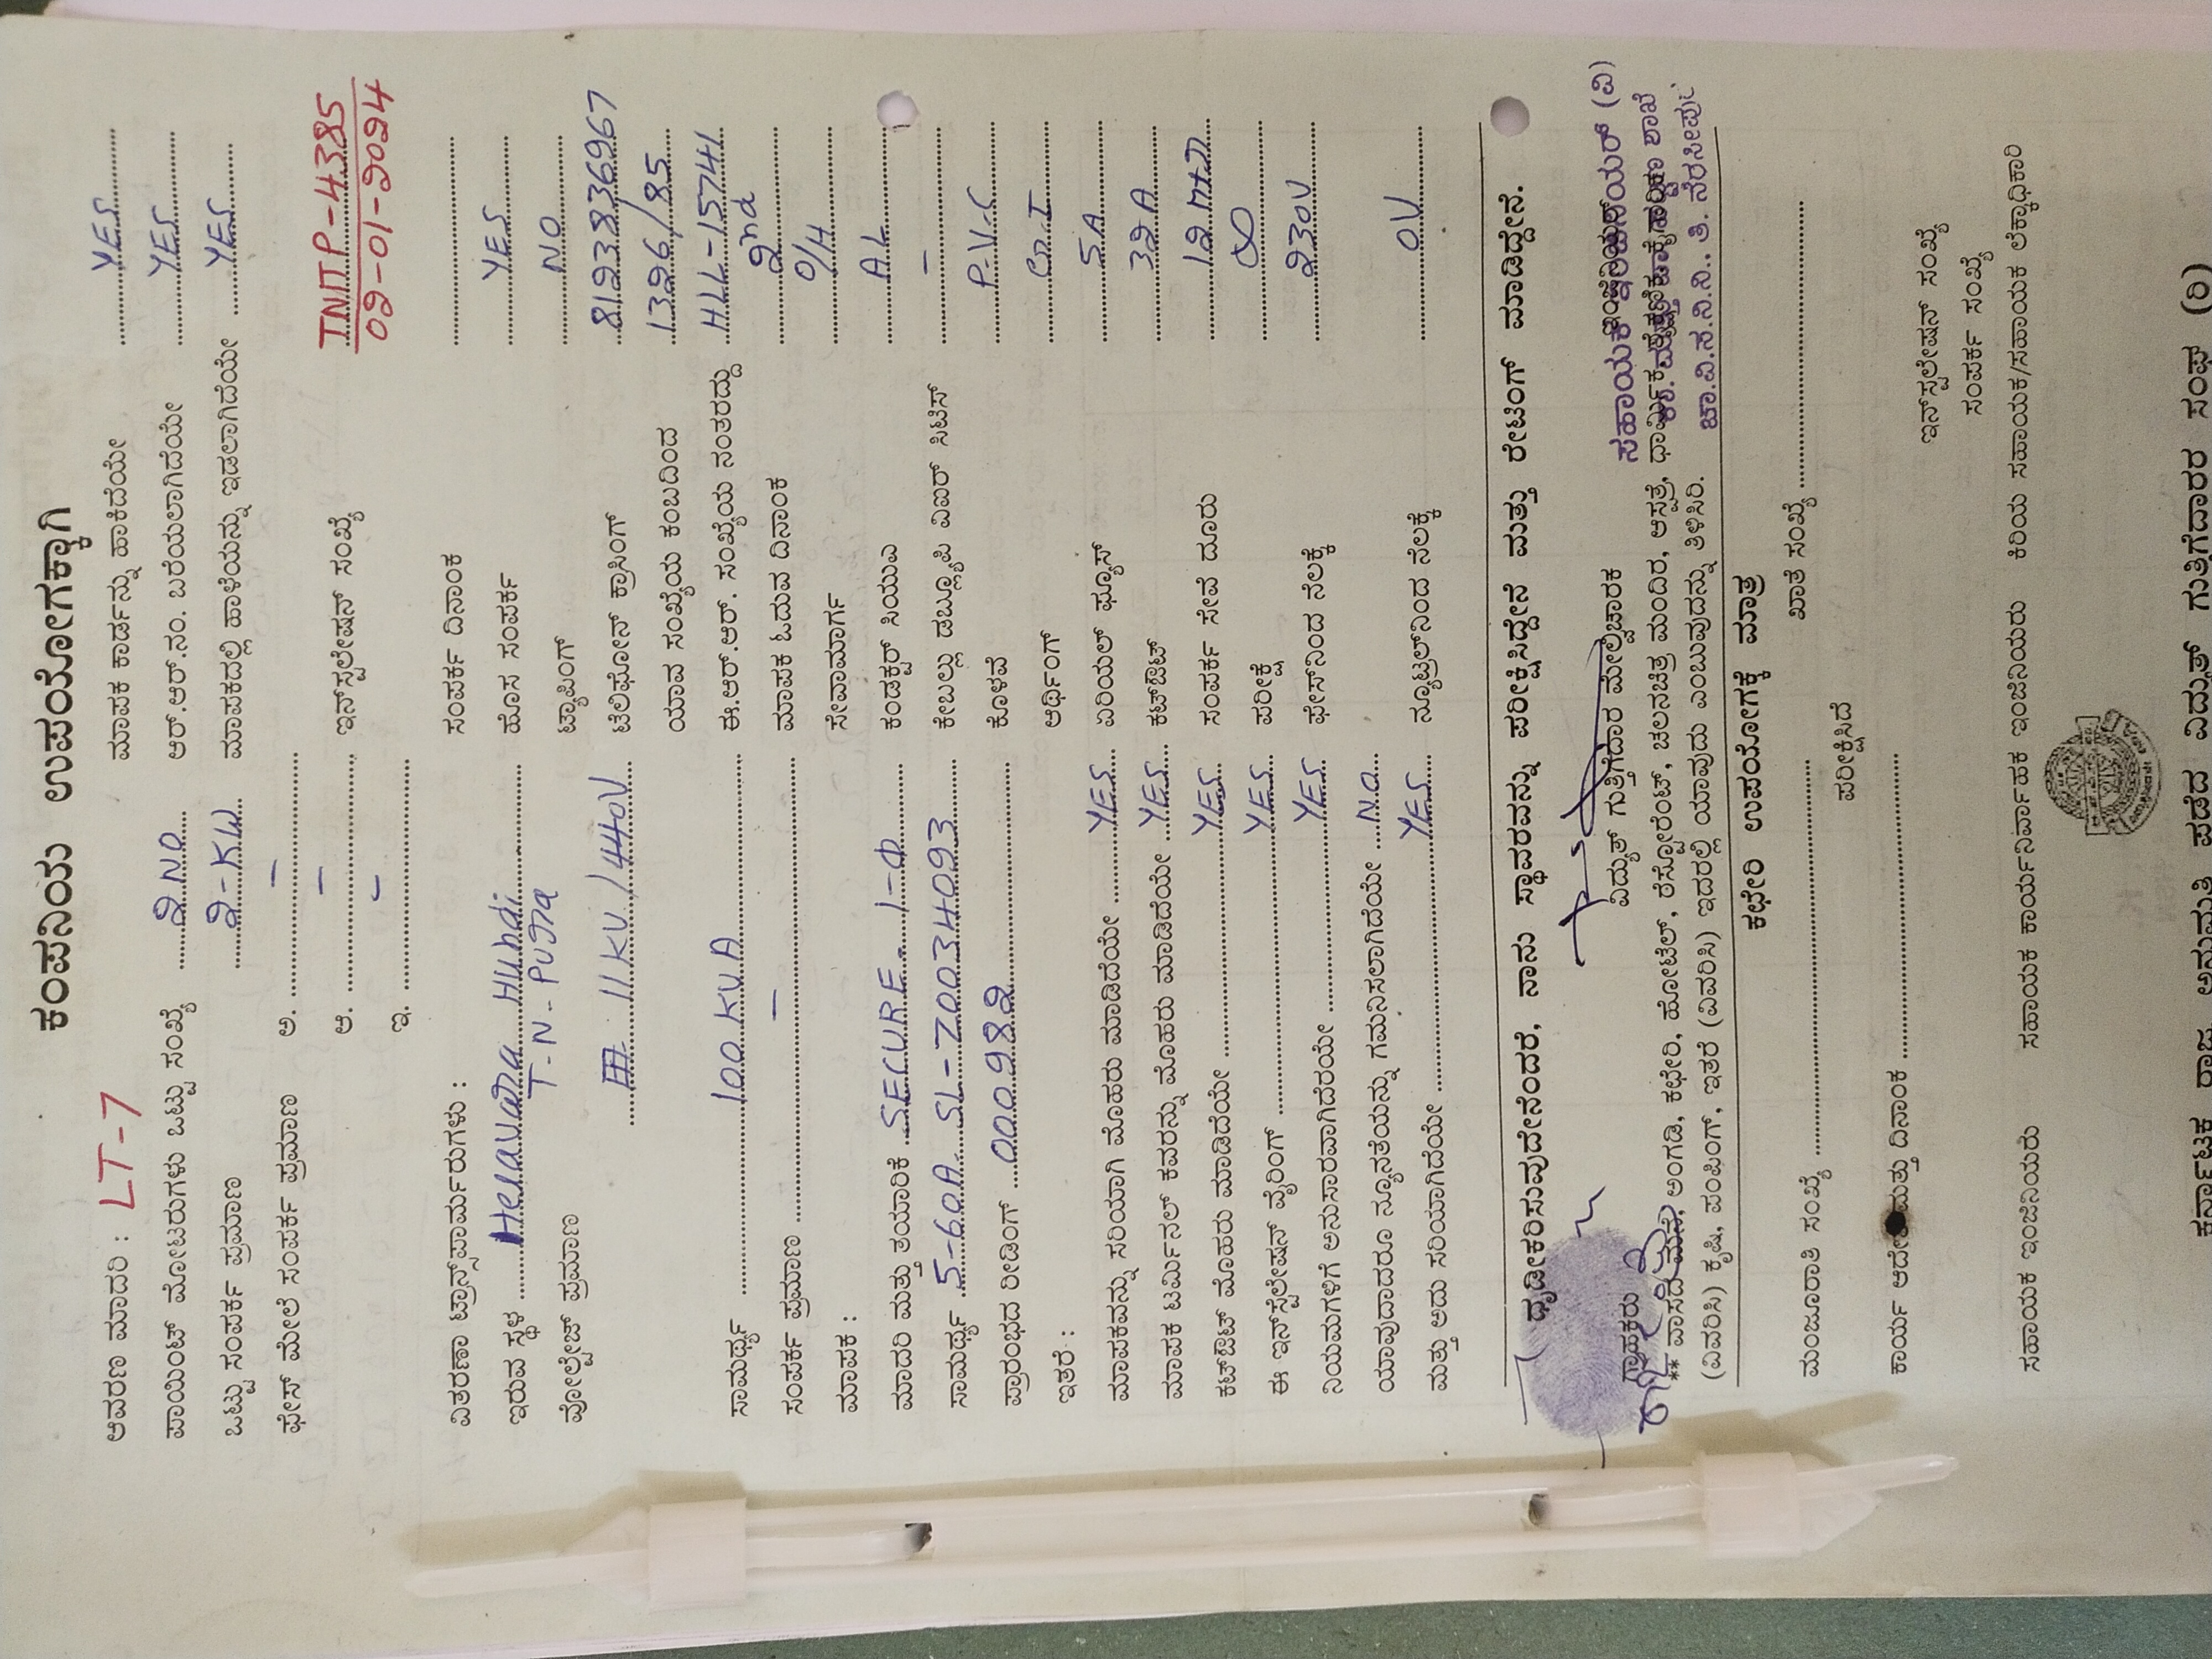 ಕಂಪನಿಯ ಉಪಯೋಗಕ್ಕಾಗಿ
ಆವರಣ ಮಾದರಿ : LT-7 ಮಾಪಕ ಕಾರ್ಡನ್ನು ಹಾಕಿದೆಯೇ YES
ಪಾಯಿಂಟ್ ಮೋಟರುಗಳು ಒಟ್ಟು ಸಂಖ್ಯೆ 2 NO ಆರ್.ಆರ್.ನಂ. ಬರೆಯಲಾಗಿದೆಯೇ YES
ಒಟ್ಟು ಸಂಪರ್ಕ ಪ್ರಮಾಣ 2-KW ಮಾಪಕದಲ್ಲಿ ಹಾಳೆಯನ್ನು ಇಡಲಾಗಿದೆಯೇ YES
ಫೇಸ್ ಮೇಲೆ ಸಂಪರ್ಕ ಪ್ರಮಾಣ ಅ. -
ಆ. - ಇನ್‌ಸ್ಟಲೇಷನ್ ಸಂಖ್ಯೆ TNITP-4385
ಇ. - 02-01-2024
ವಿತರಣಾ ಟ್ರಾನ್ಸ್‌ಫಾರ್ಮರುಗಳು : ಸಂಪರ್ಕ ದಿನಾಂಕ
ಇರುವ ಸ್ಥಳ Heravara Hundi ಹೊಸ ಸಂಪರ್ಕ YES
T-N-Pura
ವೋಲ್ಟೇಜ್ ಪ್ರಮಾಣ ಟ್ಯಾಪಿಂಗ್ NO
11KV/440V ಟೆಲಿಫೋನ್ ಕ್ರಾಸಿಂಗ್ 8193836967
ಯಾವ ಸಂಖ್ಯೆಯ ಕಂಬದಿಂದ 1326/85
ಸಾಮರ್ಥ್ಯ 100 KVA ಈ.ಆರ್.ಆರ್. ಸಂಖ್ಯೆಯ ನಂತರದ್ದು HLL-15741
ಸಂಪರ್ಕ ಪ್ರಮಾಣ - ಮಾಪಕ ಓದುವ ದಿನಾಂಕ 2nd
ಮಾಪಕ : ಸೇವಾಮಾರ್ಗ O/H
ಮಾದರಿ ಮತ್ತು ತಯಾರಿಕೆ SECURE 1-Φ ಕಂಡಕ್ಟರ್ ಸಿಯುಎ AL
ಸಾಮರ್ಥ್ಯ 5-60A SL-70034093 ಕೇಬಲ್ಲು ಡಬ್ಲ್ಯೂಪಿ ವಿಐಆರ್ ಸಿಟಿಸ್ -
ಪ್ರಾರಂಭದ ರೀಡಿಂಗ್ 000982 ಕೊಳವೆ P.V.C
ಇತರೆ : ಅರ್ಥಿಂಗ್ G.I
ಮಾಪಕವನ್ನು ಸರಿಯಾಗಿ ಮೊಹರು ಮಾಡಿದೆಯೇ YES ಏರಿಯಲ್ ಫ್ಯೂಸ್ 5A
ಮಾಪಕ ಟರ್ಮಿನಲ್ ಕವರನ್ನು ಮೊಹರು ಮಾಡಿದೆಯೇ YES ಕಟ್‌ಔಟ್ 32A
ಕಟ್‌ಔಟ್ ಮೊಹರು ಮಾಡಿದೆಯೇ YES ಸಂಪರ್ಕ ಸೇವೆ ದೂರು 12 Mtr
ಈ ಇನ್‌ಸ್ಟಲೇಷನ್ ವೈರಿಂಗ್ YES ಪರೀಕ್ಷೆ ∞
ನಿಯಮಗಳಿಗೆ ಅನುಸಾರವಾಗಿದೆರೆಯೇ YES ಫೇಸ್‌ನಿಂದ ನೆಲಕ್ಕೆ 230V
ಯಾವುದಾದರೂ ನ್ಯೂನತೆಯನ್ನು ಗಮನಿಸಲಾಗಿದೆಯೇ NO
ಮತ್ತು ಅದು ಸರಿಯಾಗಿದೆಯೇ YES ನ್ಯೂಟ್ರಲ್‌ನಿಂದ ನೆಲಕ್ಕೆ 0V
ದೃಡೀಕರಿಸುವುದೇನೆಂದರೆ, ನಾನು ಸ್ಥಾವರವನ್ನು ಪರೀಕ್ಷಿಸಿದ್ದೇನೆ ಮತ್ತು ರೇಟಿಂಗ್ ಮಾಡಿದ್ದೇನೆ.
ಗ್ರಾಹಕರು ವಿದ್ಯುತ್ ಗುತ್ತಿಗೆದಾರ ಮೇಲ್ವಿಚಾರಕ ಸಹಾಯಕ ಇಂಜಿನಿಯರ್ (ವಿ)
** ವಾಸದ ಮನೆ, ಅಂಗಡಿ, ಕಛೇರಿ, ಹೋಟೆಲ್, ರೆಸ್ಟೋರೆಂಟ್, ಚಲನಚಿತ್ರ ಮಂದಿರ, ಆಸ್ಪತ್ರೆ, ಧಾರ್ಮಿಕ ಶಾಖೆ
(ವಿವರಿಸಿ) ಕೃಷಿ, ಪಂಪಿಂಗ್, ಇತರೆ (ವಿವರಿಸಿ) ಇದರಲ್ಲಿ ಯಾವುದು ಎಂಬುವುದನ್ನು ತಿಳಿಸಿರಿ. ಚಾ.ವಿ.ಸ.ನಿ.ನಿ., ತಿ. ನರಸೀಪುರ
ಕಛೇರಿ ಉಪಯೋಗಕ್ಕೆ ಮಾತ್ರ
ಮಂಜೂರಾತಿ ಸಂಖ್ಯೆ ಖಾತೆ ಸಂಖ್ಯೆ
ಪರೀಕ್ಷಿಸಿದೆ
ಕಾರ್ಯ ಆದೇಶ ಮತ್ತು ದಿನಾಂಕ
ಇನ್‌ಸ್ಟಲೇಷನ್ ಸಂಖ್ಯೆ
ಸಂಪರ್ಕ ಸಂಖ್ಯೆ
ಸಹಾಯಕ ಇಂಜಿನಿಯರು ಸಹಾಯಕ ಕಾರ್ಯನಿರ್ವಾಹಕ ಇಂಜಿನಿಯರು ಕಿರಿಯ ಸಹಾಯಕ/ಸಹಾಯಕ ಲೆಕ್ಕಾಧಿಕಾರಿ
ಕರ್ನಾಟಕ ರಾಜ್ಯ ಅನುಮತಿ ಪಡೆದ ವಿದ್ಯುತ್ ಗುತ್ತಿಗೆದಾರರ ಸಂಘ (ರಿ)